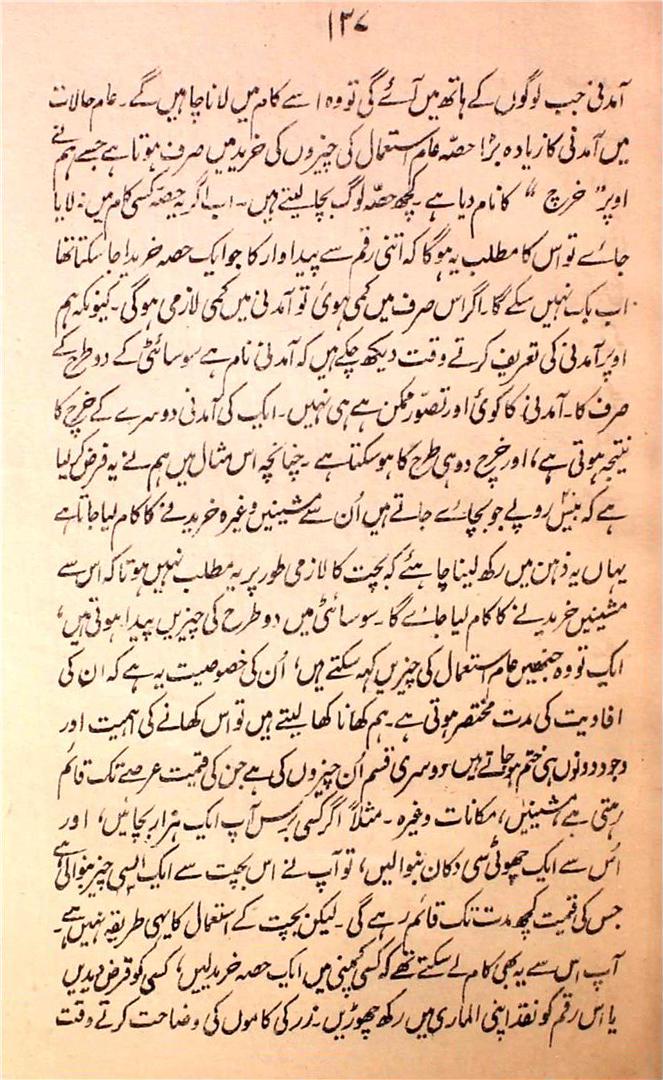 ۱۳۷
آمدنی جب لوگوں کے ہاتھ میں آئے گی تو وہ اسے کام میں لانا چاہیں گے۔ عام حالات
میں آمدنی کا زیادہ بڑا حصّہ عام استعمال کی چیزوں کی خرید میں صرف ہوتا ہے جسے ہم نے
اوپر ”خرچ“ کا نام دیا ہے۔ کچھ حصّہ لوگ بچا لیتے ہیں۔ اب اگر یہ حصّہ کسی کام میں نہ لایا
جائے تو اس کا مطلب یہ ہوگا کہ اتنی رقم سے پیداوار کا جو ایک حصہ خریدا جا سکتا تھا
اب بک نہیں سکے گا۔ اگر اس صرف میں کمی ہوئی تو آمدنی میں کمی لازمی ہوگی۔ کیونکہ ہم
اوپر آمدنی کی تعریف کرتے وقت دیکھ چکے ہیں کہ آمدنی نام ہے سوسائٹی کے دو طرح کے
صرف کا۔ آمدنی کا کوئی اور تصوّر ممکن ہے ہی نہیں۔ ایک کی آمدنی دوسرے کے خرچ کا
نتیجہ ہوتی ہے، اور خرچ دو ہی طرح کا ہو سکتا ہے۔ چنانچہ اس مثال میں ہم نے یہ فرض کر لیا
ہے کہ بیس روپے جو بچائے جاتے ہیں اُن سے مشینیں وغیرہ خریدنے کا کام لیا جاتا ہے
یہاں یہ ذہن میں رکھ لینا چاہئے کہ بچت کا لازمی طور پر یہ مطلب نہیں ہوتا کہ اس سے
مشینیں خریدنے کا کام لیا جائے گا۔ سوسائٹی میں دو طرح کی چیزیں پیدا ہوتی ہیں،
ایک تو وہ جنھیں عام استعمال کی چیزیں کہہ سکتے ہیں، اُن کی خصوصیت یہ ہے کہ ان کی
افادیت کی مدت مختصر ہوتی ہے۔ ہم کھانا کھا لیتے ہیں تو اس کھانے کی اہمیت اور
وجود دونوں ہی ختم ہو جاتے ہیں۔ دوسری قسم اُن چیزوں کی ہے جن کی قیمت عرصے تک قائم
رہتی ہے، مشینیں، مکانات وغیرہ۔ مثلاً اگر کسی برس آپ ایک ہزار بچائیں، اور
اُس سے ایک چھوٹی سی دکان بنوا لیں، تو آپ نے اس بچت سے ایک ایسی چیز بنوالی ہے
جس کی قیمت کچھ مدت تک قائم رہے گی۔ لیکن بچت کے استعمال کا یہی طریقہ نہیں ہے۔
آپ اس سے یہ بھی کام لے سکتے تھے کہ کسی کمپنی میں ایک حصہ خرید لیں، کسی کو قرض دیدیں
یا اس رقم کو نقد اپنی الماری میں رکھ چھوڑیں۔ زر کی کاموں کی وضاحت کرتے وقت